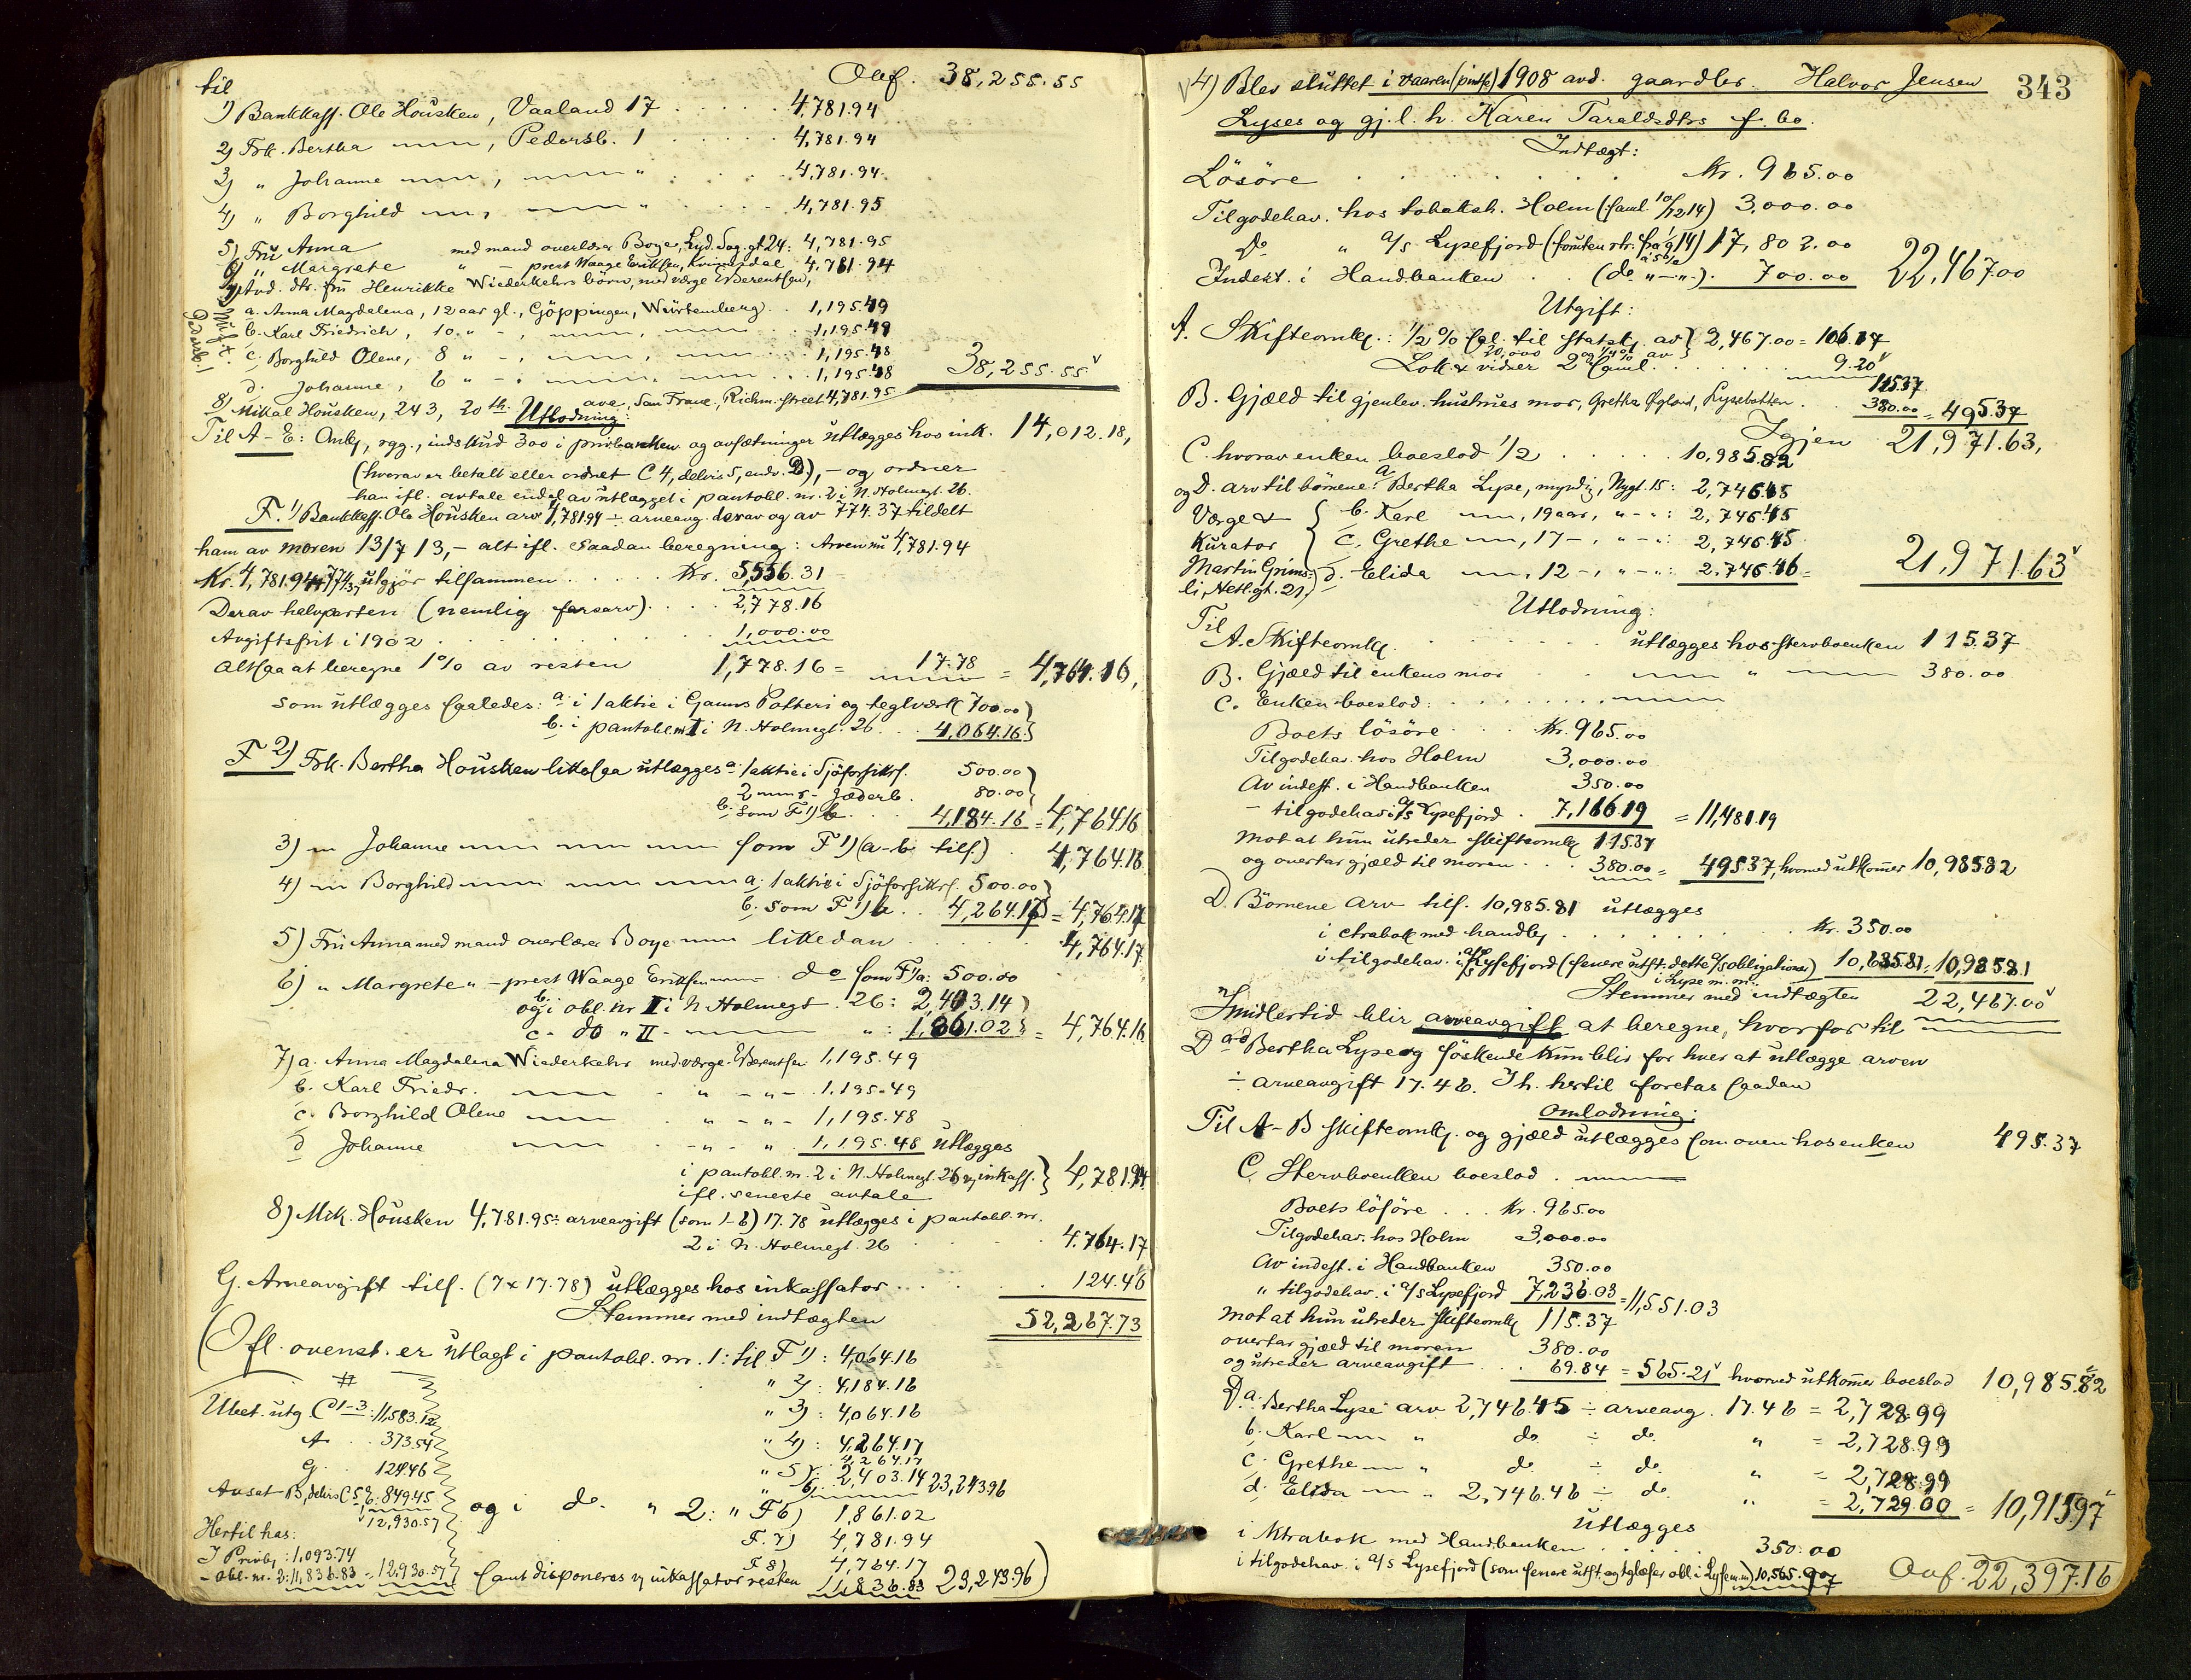 til
Overf. 38,255.55
1) Bankkass. Ole Housken, Vaaland 17 . . . . . 4,781.94
2) Frk. Bertha —"—, Pedersb. 1 . . . . 4,781.94
3) " Johanne —"—, —"— " . . . 4,781.94
4) " Borghild —"—, —"— " . . . 4,781.95
5) Fru Anna med mand overlærer Boye, Lyd. Sag. gt 24: 4,781.95
6) " Margrete " — prest Waage Eriksen, Kvinesdal 4,781.94
7) Avd. dtr. fru Henrikke Wiederkehrs börn, med værge E Berentsen,
Pedersb. 1
a. Anna Magdalena, 12 aar gl., Göppingen, Würtemberg . . 1,195.49
b. Karl Friedrich, 10 " -, —"—, —"— . . 1,195.49
c. Borghild Olene, 8 " -, —"—, —"— . . 1,195.48
d. Johanne, 6 " -, —"—, —"— . . 1,195.48
38,255.55
8) Mikal Housken, 243, 20th ave, San Franc., Richm. street 4,781.95
Utlodning:
Til A-E: Omk, rgg., indskud 300 i privbanken og avsætninger utlægges hos ink. 14,012.18,
(hvorav er betalt eller ordnet C 4, delvis 5, endv. D), - og ordner
han ifl. avtale endel av utlægget i pantobl. nr. 2 i N. Holmegt. 26.
F. 1) Bankkass. Ole Housken arv 4,781.94 ÷ arveavg. derav og av 774.37 tildelt
ham av moren 13/7 13, - alt ifl. saadan beregning: Arven nu 4,781.94
Kr. 4,781.94 + 774.37 utgjör tilsammen . . . . Kr. 5,556.31
Derav halvparten (nemlig farsarv) . . . 2,778.16
Avgiftsfrit i 1902 . . . 1,000.00
altsaa at beregne 1% av resten 1,778.16 = 17.78 = 4,764.16,
som utlægges saaledes: a. i 1 aktie i Ganns Potteri og teglværk 700.00
b. i pantobl. nr I i N. Holmegt. 26 . . 4,064.16
F 2) Frk. Bertha Housken likesaa utlægges a. 1 aktie i Sjöforsikrs. 500.00
2 —"— s - Jæderb. 80.00
b. som F 1) b . . . 4,184.16 = 4,764.16
3) —"— Johanne —"— —"— —"— som F 1) (a-b tils.) . 4,764.16
4) —"— Borghild —"— —"— —"— a. 1 aktie i Sjöforsikrs. 500.00
b. som F 1) b . . 4,264.17 = 4,764.17
5) Fru Anna med mand overlærer Boye —"— likedan . . . 4,764.17
6) " Margrete " - prest Waage Eriksen —"— do som F 1) a: 500.00
b. og i obl. nr I i N. Holmegt. 26: 2,403.14
c. do " II - —"— ": 1,861.02 = 4,764.16
7) a. Anna Magdalena Wiederkehr med værge E Berentsen 1,195.49
b. Karl Friedr. —"— " - " - 1,195.49
c. Borghild Olene —"— " - " - 1,195.48
d Johanne —"— " - " 1,195.48 utlægges
i pantobl. nr. 2 i N. Holmegt. 26 v/ inkass. 4,781.94
ifl. seneste avtale
8) Mik. Housken 4,781.95 ÷ arveavgift (som 1-6) 17.78 utlægges i pantobl. nr.
2 i N. Holmegt. 26 . . . 4.764.17
G. Arveavgift tils. (7 x 17.78) utlægges hos inkassator . . . 124.46
Stemmer med indtægten 52,267.73
(Ifl. ovenst. er utlagt i pantobl. nr. 1: til F 1): 4,064.16
" 2): 4,184.16
" 3): 4,064.16
" 4): 4,264.17
" 5): 4,264.17
" 6): 2,403.14 23,243.96
og i do. " 2: " F 6) 1,861.02
F. 7) 4,781.94
F 8) 4,764.17
samt disponeres v/ inkassator resten 11,836.83 23,243.96)
#
Ubet. utg. C 1-3: 11,583.12
A . . 373.54
G . 124.46
Avsat B, delvis C 5, E: 849.45
12,930.57
Hertil has:
I Privb: 1,093.74
- obl. nr. 2: 11,836.83 = 12,930.57
343
4) Blev sluttet i vaaren (pintse) 1908 avd. gaardbr. Halvor Jensen
Lyses og gj. l. h. Karen Taraldsdtrs f. bo.
Indtægt:
Lösöre . . . . . . Kr. 965.00
Tilgodehav. hos tobaksh. Holm (saml. 10/12 14) 3,000.00
Do " A/S Lysefjord (foruten rtr. fra 1/9 14) 17,802.00
Indest. i Handbanken . . (do " - ".) 700.00 22,467.00
Utgift:
A. Skifteomk.: 1/2 % sal. til statsk. av 2,467.00 = 106.17
20,000 og 1/4% av
Lok & vidner 2 saml. . . . . 9.20
115.37
B. Gjæld til gjenlev. hustrues mor, Grethe Øgland, Lysebotten . . 380.00 = 495.37
Igjen 21,971.63,
C. hvorav enken boeslod 1/2 . . . . 10,985.82
og D. arv til börnene: a. Bertha Lyse, myndig, Nygt. 15: 2,746.45
Værge & b. Karl —"—, 19 aar, " - ": 2,746.45
Kurator c. Grethe —"—, 17 -, " - ": 2,746.45
Martin Grims- d. Elida —"—, 12 -, " - ": 2.746.46 = 21,971.63
li, Hetl. gt. 21,
Utlodning:
Til
A. Skifteomk. . . . utlægges hos stervboenken 115.37
B. Gjæld til enkens mor . . —"— " —"— 380.00
C. Enken boeslod: . . . . . —"—
Boets lösöre . . . Kr. 965.00
Tilgodehav. hos Holm 3,000.00
Av indest. i Handbanken 350.00
- tilgodehav i A/S Lysefjord . 7,166.19 = 11,481.19
Mot at hun utreder skifteomk 115.37
og overtar gjæld til moren . . . 380.00 = 495.37, hvormed utkommer 10,985.82
D. Börnene arv tils. 10,985.81 utlægges
i ktrabok med handbk . . . . . . Kr. 350.00
i tilgodehav. i A/S Lysefjord (senere utst. dette A/S obligationer) 10,635.81 = 10,985.81
i Lyse m. m.
Stemmer med indtægten 22,467.00
Imidlertid blir arveavgift at beregne, hvorfor til
D a-d Bertha Lyse og söskende kun blir for hver at utlægge arven
÷ arveavgift 17.46. I h. hertil foretas saadan
Omlodning:
Til A-B skifteomk. og gjæld utlægges som oven hos enken 495.37
C. Stervboenken boeslod . —"—
Boets lösöre . . . Kr. 965.00
Tilgodehav. hos Holm 3,000.00
Av indest. i Handbanken 350.00
" tilgodehav. i A/S Lysefjord 7,236.03 = 11,551.03
Mot at hun utreder skifteomk 115.37
overtar gjæld til moren 380.00
og utreder arveavgift . . 69.84 = 565.21 hvorved utkommer boeslod 10,985.82
D. a. Bertha Lyse arv 2,746.45 ÷ arveavg. 17.46 = 2,728.99
b. Karl —"— " do. ÷ do. " = 2,728.99
c. Grethe —"— " do. ÷ do. " = 2,728.99
d. Elida —"— " 2,746.46 ÷ do. " = 2,729.00 = 10,915.97
utlægges
i ktrabok med Handbanken . . . . 350.00
i tilgodehav. i A/S Lysefjord (som senere utst. obl. i Lyse m. m) 10,565.97
Ovf. 22,397.16